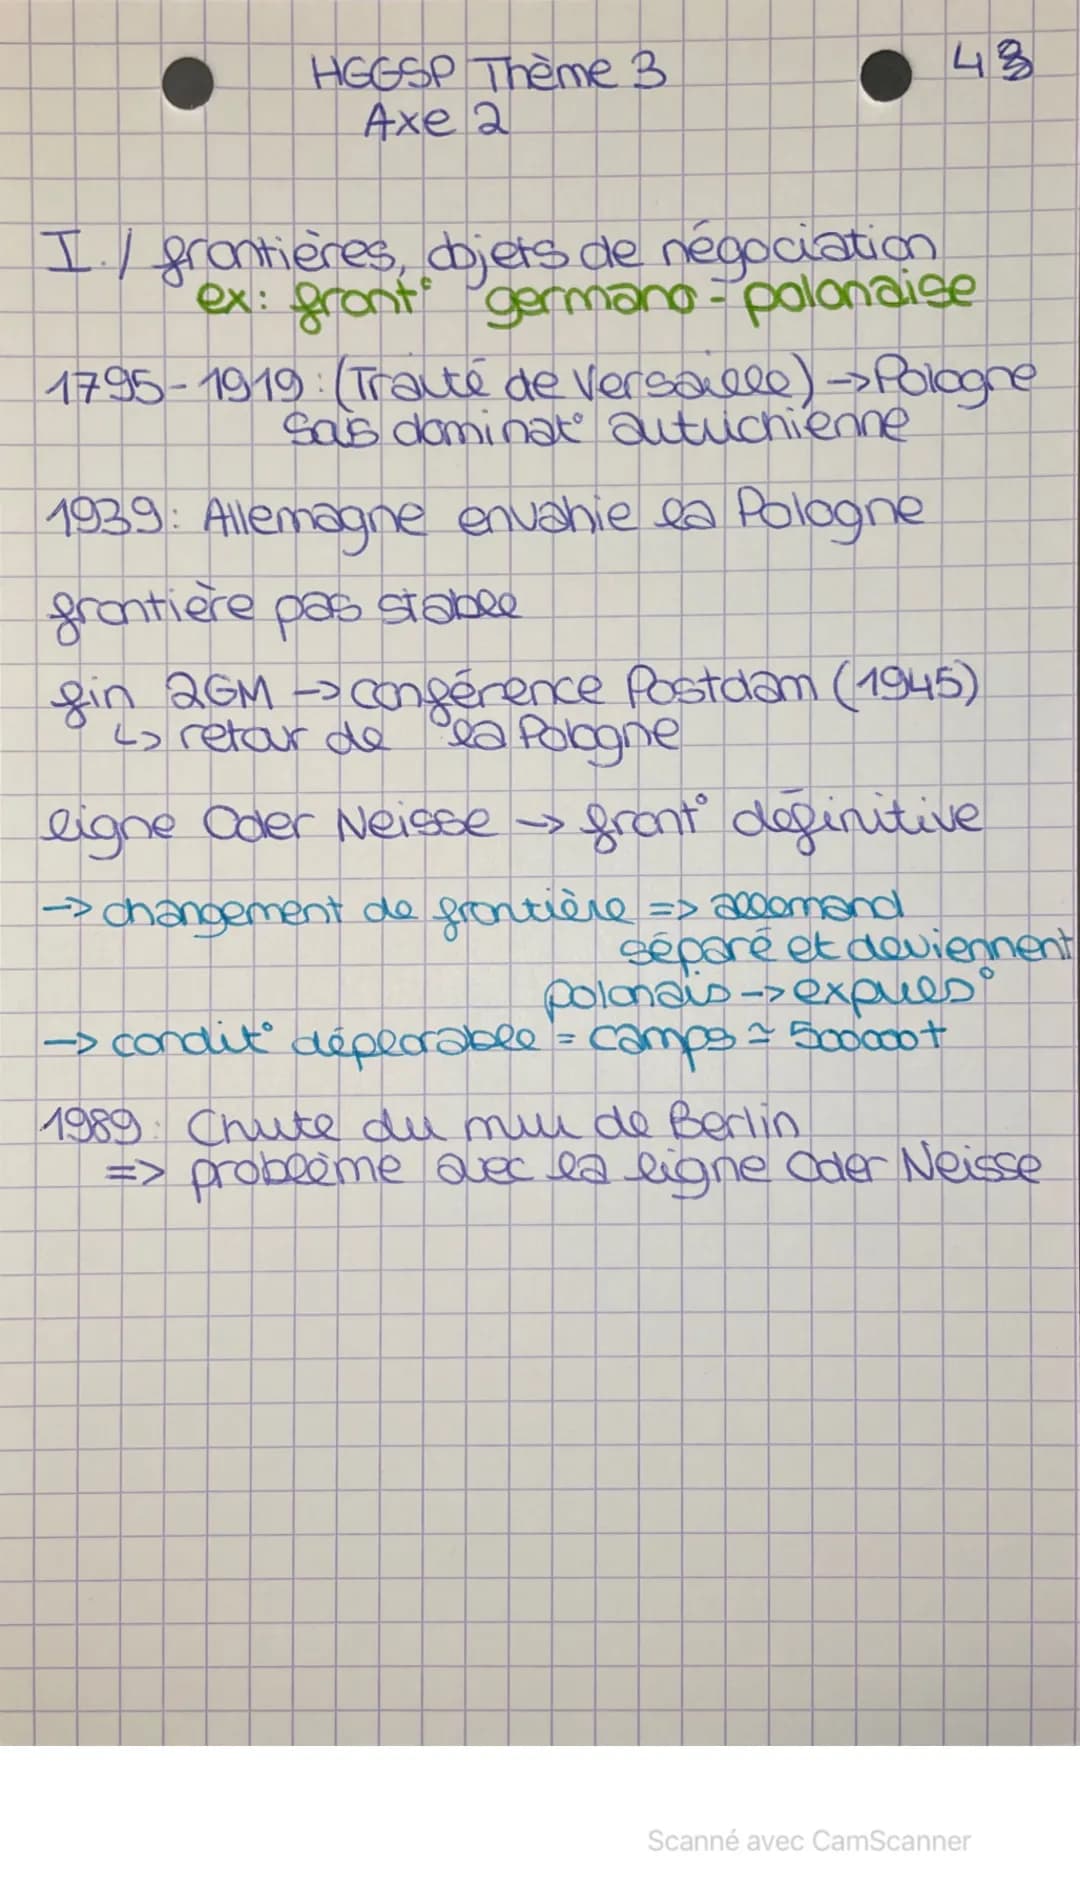 HGGSP Thème 3
Axe 2
I./ frontières, objets de négociation
ex: front° germano-polonaise
1795-1919: (Traité de Versaille) → Pologne
sous dominat° autrichienne
1939: Allemagne envahie la Pologne
frontière pas stable
fin 2GM → conférence Postdam (1945)
↳ retour de la Pologne
ligne Oder Neisse → front° définitive
→ changement de frontière => allemand
séparé et deviennent
polonais → expuls°
→ condit° déplorable = camps ≃ 500000+
1989: Chute du mur de Berlin
=> problème avec la ligne Oder Neisse
Scanné avec CamScanner